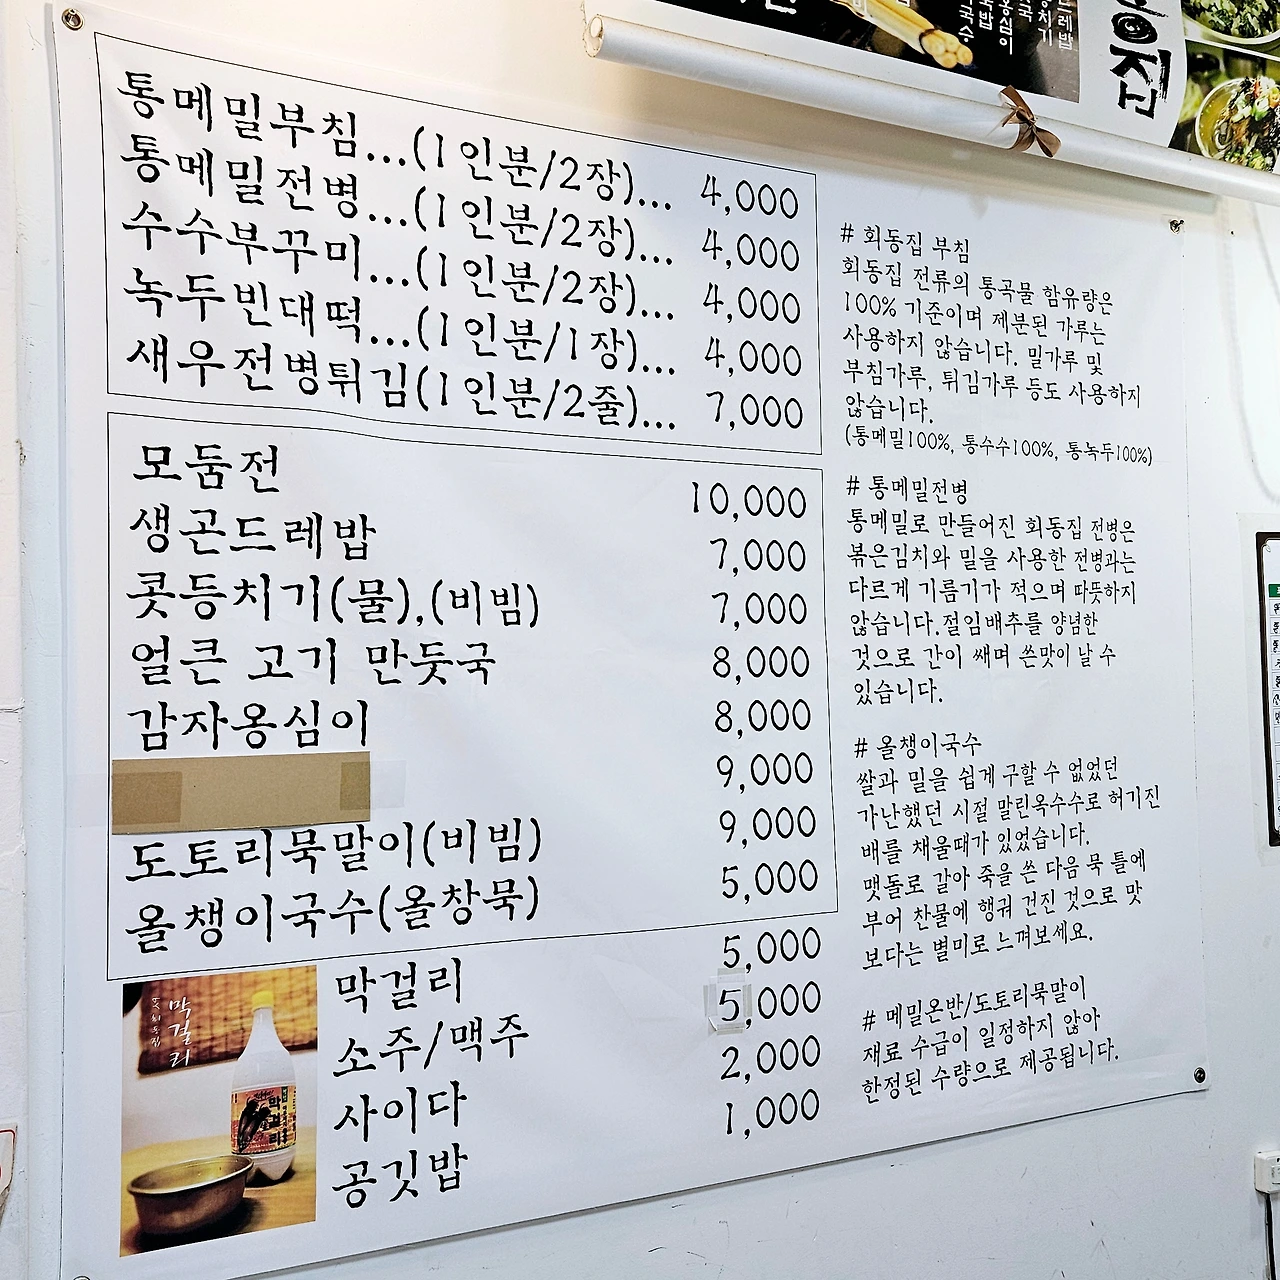 통메밀부침...(1인분/2장)... 4,000
통메밀전병...(1인분/2장)... 4,000
수수부꾸미...(1인분/2장)... 4,000
녹두빈대떡...(1인분/1장)... 4,000
새우전병튀김(1인분/2줄)... 7,000
모둠전 10,000
생곤드레밥 7,000
콧등치기(물),(비빔) 7,000
얼큰 고기 만둣국 8,000
감자옹심이 8,000
9,000
도토리묵말이(비빔) 9,000
올챙이국수(올창묵) 5,000
막걸리 5,000
소주/맥주 5,000
사이다 2,000
공깃밥 1,000
막걸리
막걸리
# 회동집 부침
회동집 전류의 통곡물 함유량은
100% 기준이며 제분된 가루는
사용하지 않습니다. 밀가루 및
부침가루, 튀김가루 등도 사용하지
않습니다.
(통메밀100%, 통수수100%, 통녹두100%)
# 통메밀전병
통메밀로 만들어진 회동집 전병은
볶은김치와 밀을 사용한 전병과는
다르게 기름기가 적으며 따뜻하지
않습니다.절임배추를 양념한
것으로 간이 쌔며 쓴맛이 날 수
있습니다.
# 올챙이국수
쌀과 밀을 쉽게 구할 수 없었던
가난했던 시절 말린옥수수로 허기진
배를 채울때가 있었습니다.
맷돌로 갈아 죽을 쓴 다음 묵 틀에
부어 찬물에 행궈 건진 것으로 맛
보다는 별미로 느껴보세요.
# 메밀온반/도토리묵말이
재료 수급이 일정하지 않아
한정된 수량으로 제공됩니다.